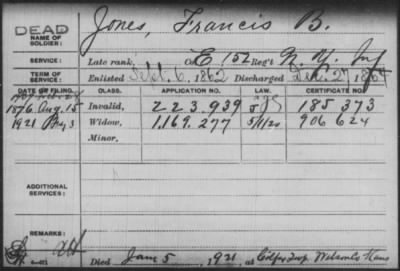 Jones, Francis B.
DEAD
NAME OF SOLDIER:
SERVICE: Late rank, Co E, 152 Reg't N.Y. Inf
TERM OF SERVICE: Enlisted Sept. 6, 1862 Discharged
DATE OF FILING. CLASS. APPLICATION NO. LAW. CERTIFICATE NO.
1876 Aug. 15 Invalid, 223.939 185.373
1921 Widow, 1.169.277 5/1/20 906 624
Minor,
ADDITIONAL SERVICES:
REMARKS:
Died Jan 5, 1921, at Colfax Twp Wilson Co Kans